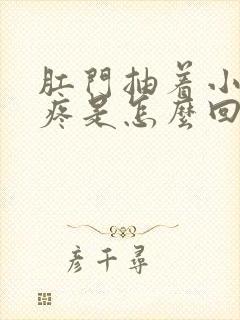 肛門抽着小
疼是怎麼回
彦千尋